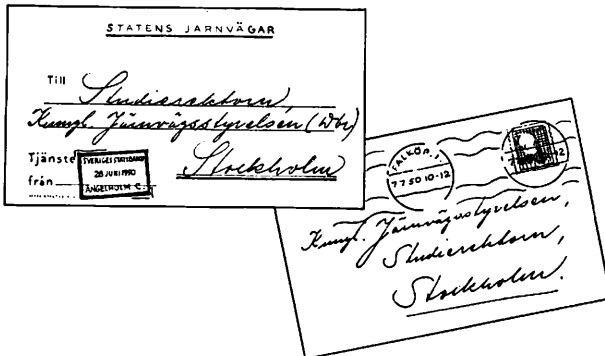 STATENS JARNVÄGAR
Till Studierektorn,
Kungl. Järnvägsstyrelsen
Tjänste
från
SVERIGES STATSBANOR
28 JUNI 1950
ÄNGELHOLM C.
Stockholm
7 7 50 10-12
Kungl. Järnvägsstyrelsen,
Studierektorn,
Stockholm.